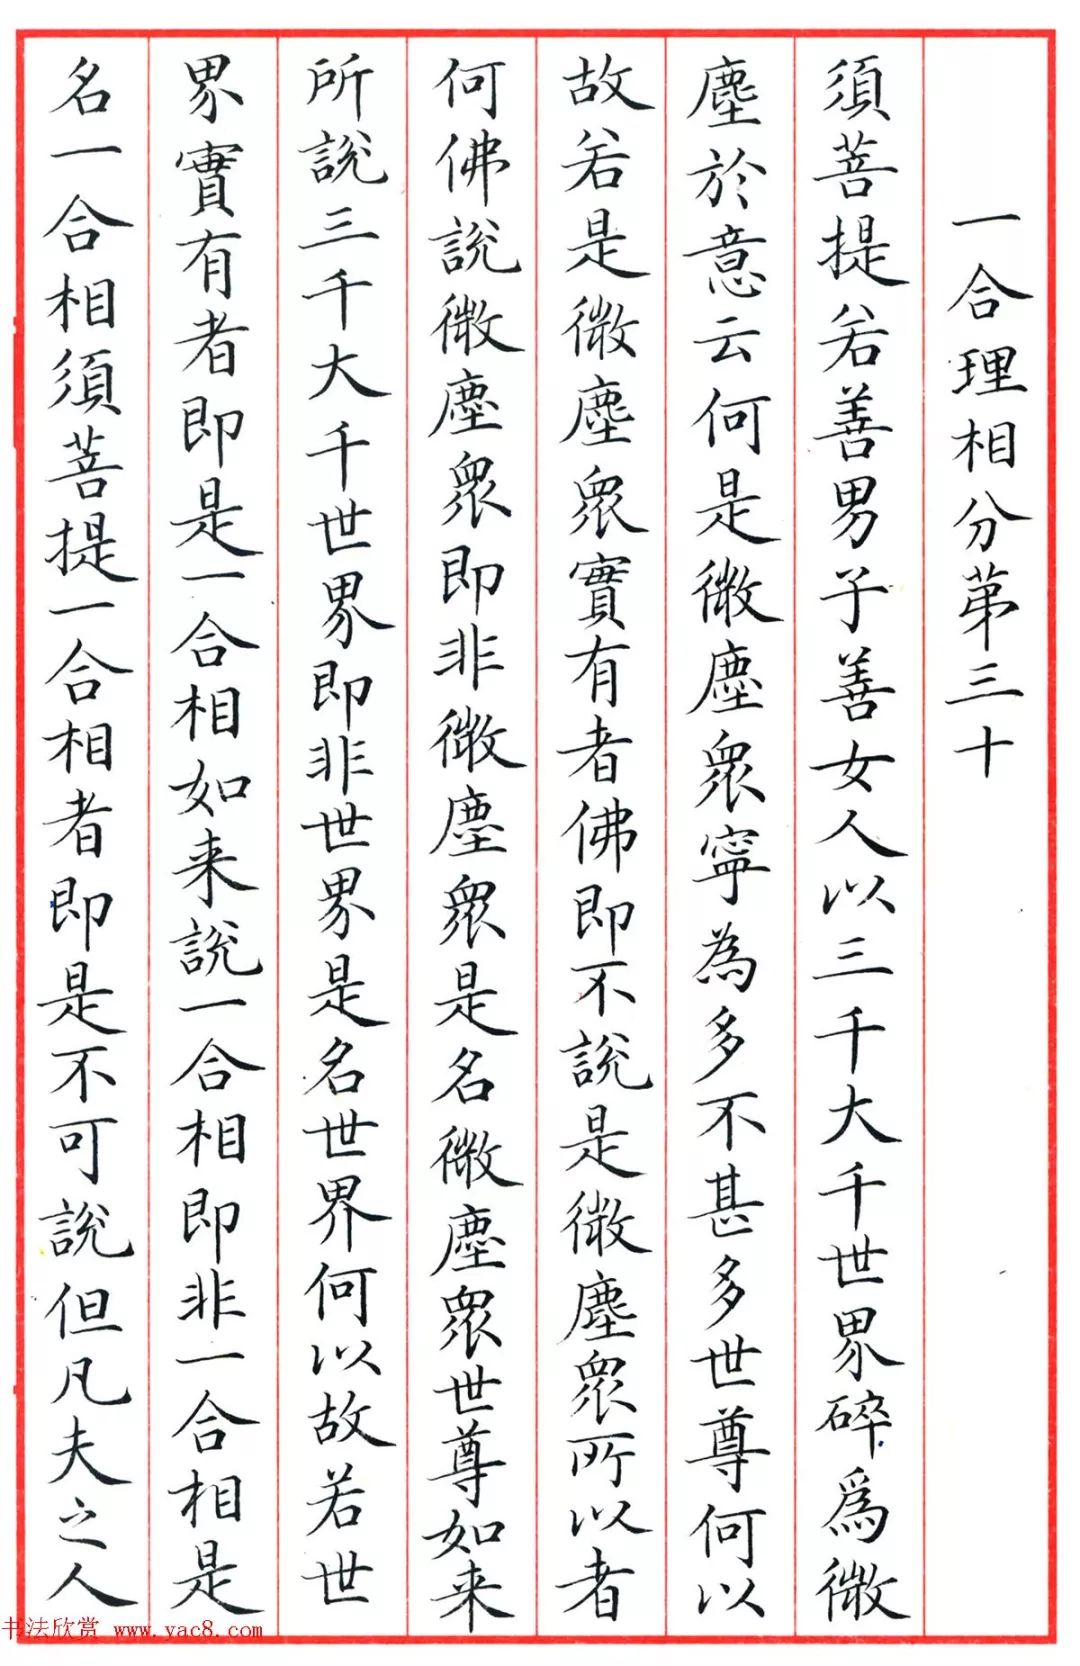 一合理相分第三十
須菩提若善男子善女人以三千大千世界碎為微
塵於意云何是微塵衆寧為多不甚多世尊何以
故若是微塵衆實有者佛即不說是微塵衆所以者
何佛說微塵衆即非微塵衆是名微塵衆世尊如来
所說三千大千世界即非世界是名世界何以故若世
界實有者即是一合相如来說一合相即非一合相是
名一合相須菩提一合相者即是不可說但凡夫之人
书法欣赏 www.yac8.com